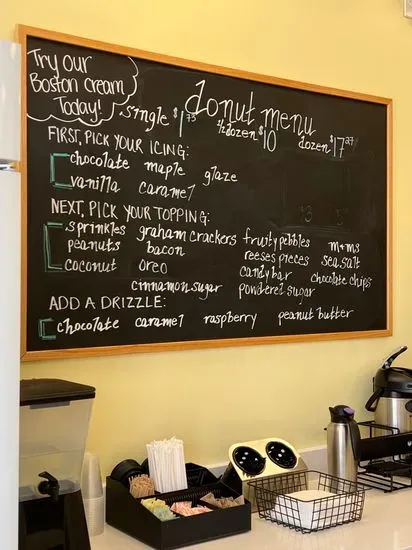 Try our
Boston cream
Today!
donut menu
single $1.75
1/2 dozen $10
dozen $17
FIRST, PICK YOUR ICING:
chocolate maple glaze
vanilla caramel
NEXT, PICK YOUR TOPPING:
sprinkles graham crackers fruity pebbles m+ms
peanuts bacon reeses pieces sea salt
coconut oreo candy bar chocolate chips
cinnamon sugar powdered sugar
ADD A DRIZZLE:
chocolate caramel raspberry peanut butter